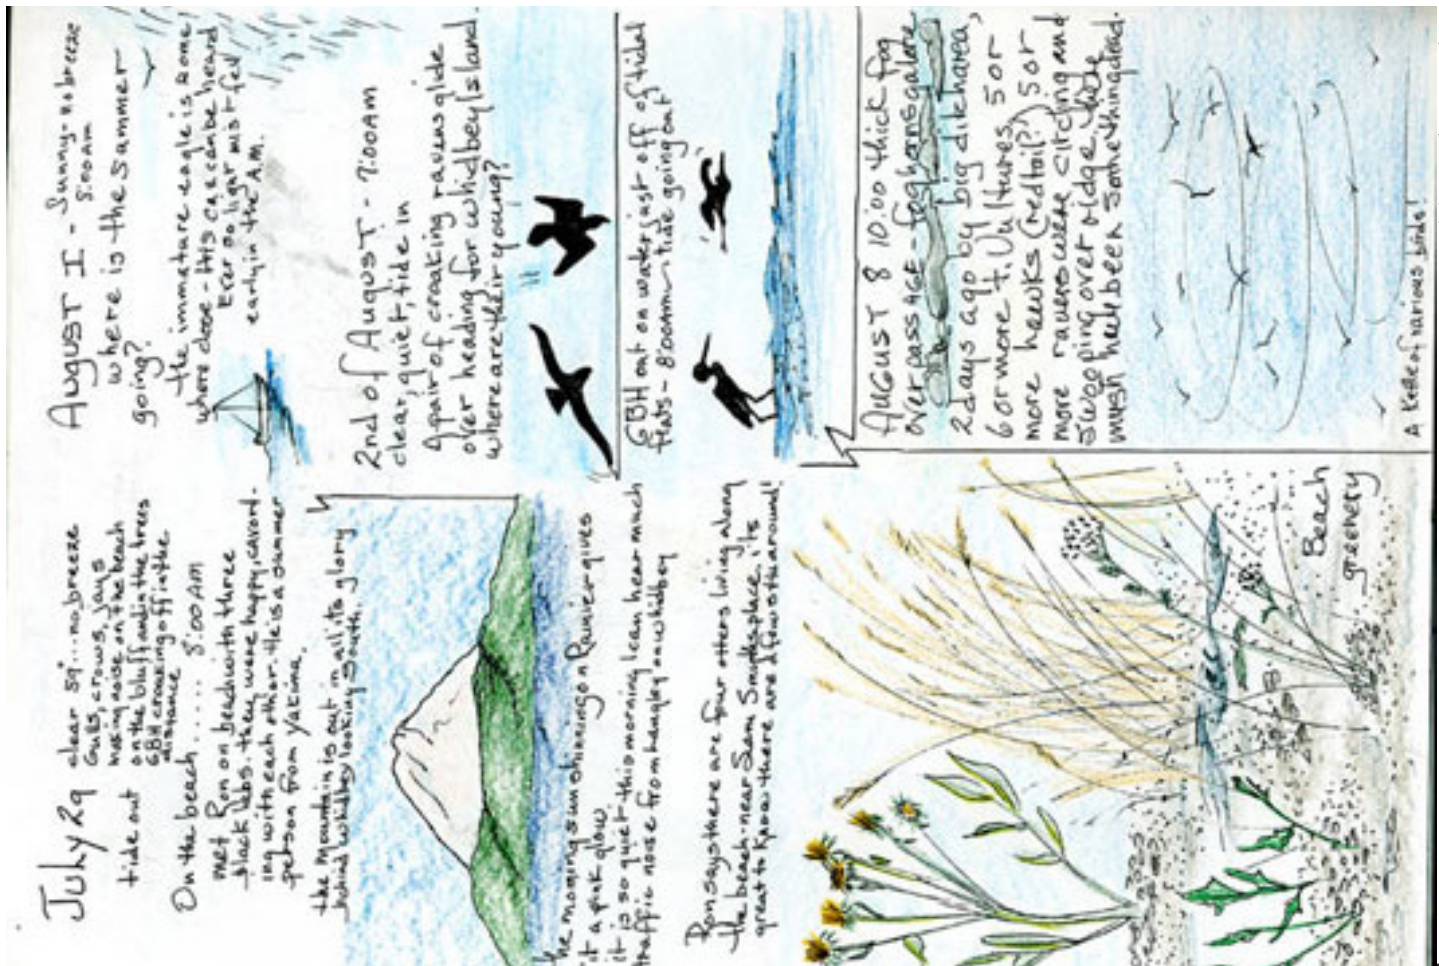 July 29
clear 59°... no breeze
Gulls, crows, jays
making noise on the beach
tide out
on the bluff and in the trees
GBH croaking off in the
distance
On the beach ..... 8:00 AM
met Ron on beach with three
black labs. they were happy, cavort-
ing with each other. He is a summer
person from Yakima.
the mountain is out in all its glory
behind whidbey looking south.
the morning sun shining on Rainier gives
it a pink glow
it is so quiet this morning I can hear much
traffic noise from highway on whidbey
Ron says there are four others living along
the beach near Sam Smiths place. its
great to know there are a few others around!
Beach
greenery
August 1 - Sunny - no breeze
8:00am
where is the summer
going?
the immature eagle is some
where close - His cry can be heard
Ever so light mist fell
early in the A.M.
2nd of August - 7:00AM
clear, quiet, tide in
A pair of croaking ravens glide
over heading for whidbey Island.
where are their young?
GBH out on water just off of tidal
flats - 8:00am - tide going out
August 8 10:00 thick fog
over passage - foghorns galore
2 days ago by big dike area,
6 or more t. Vultures, 5 or
more hawks (redtail?) 5 or
more ravens were circling and
swooping over ridge. there
must have been something dead.
A Kettle of various birds!